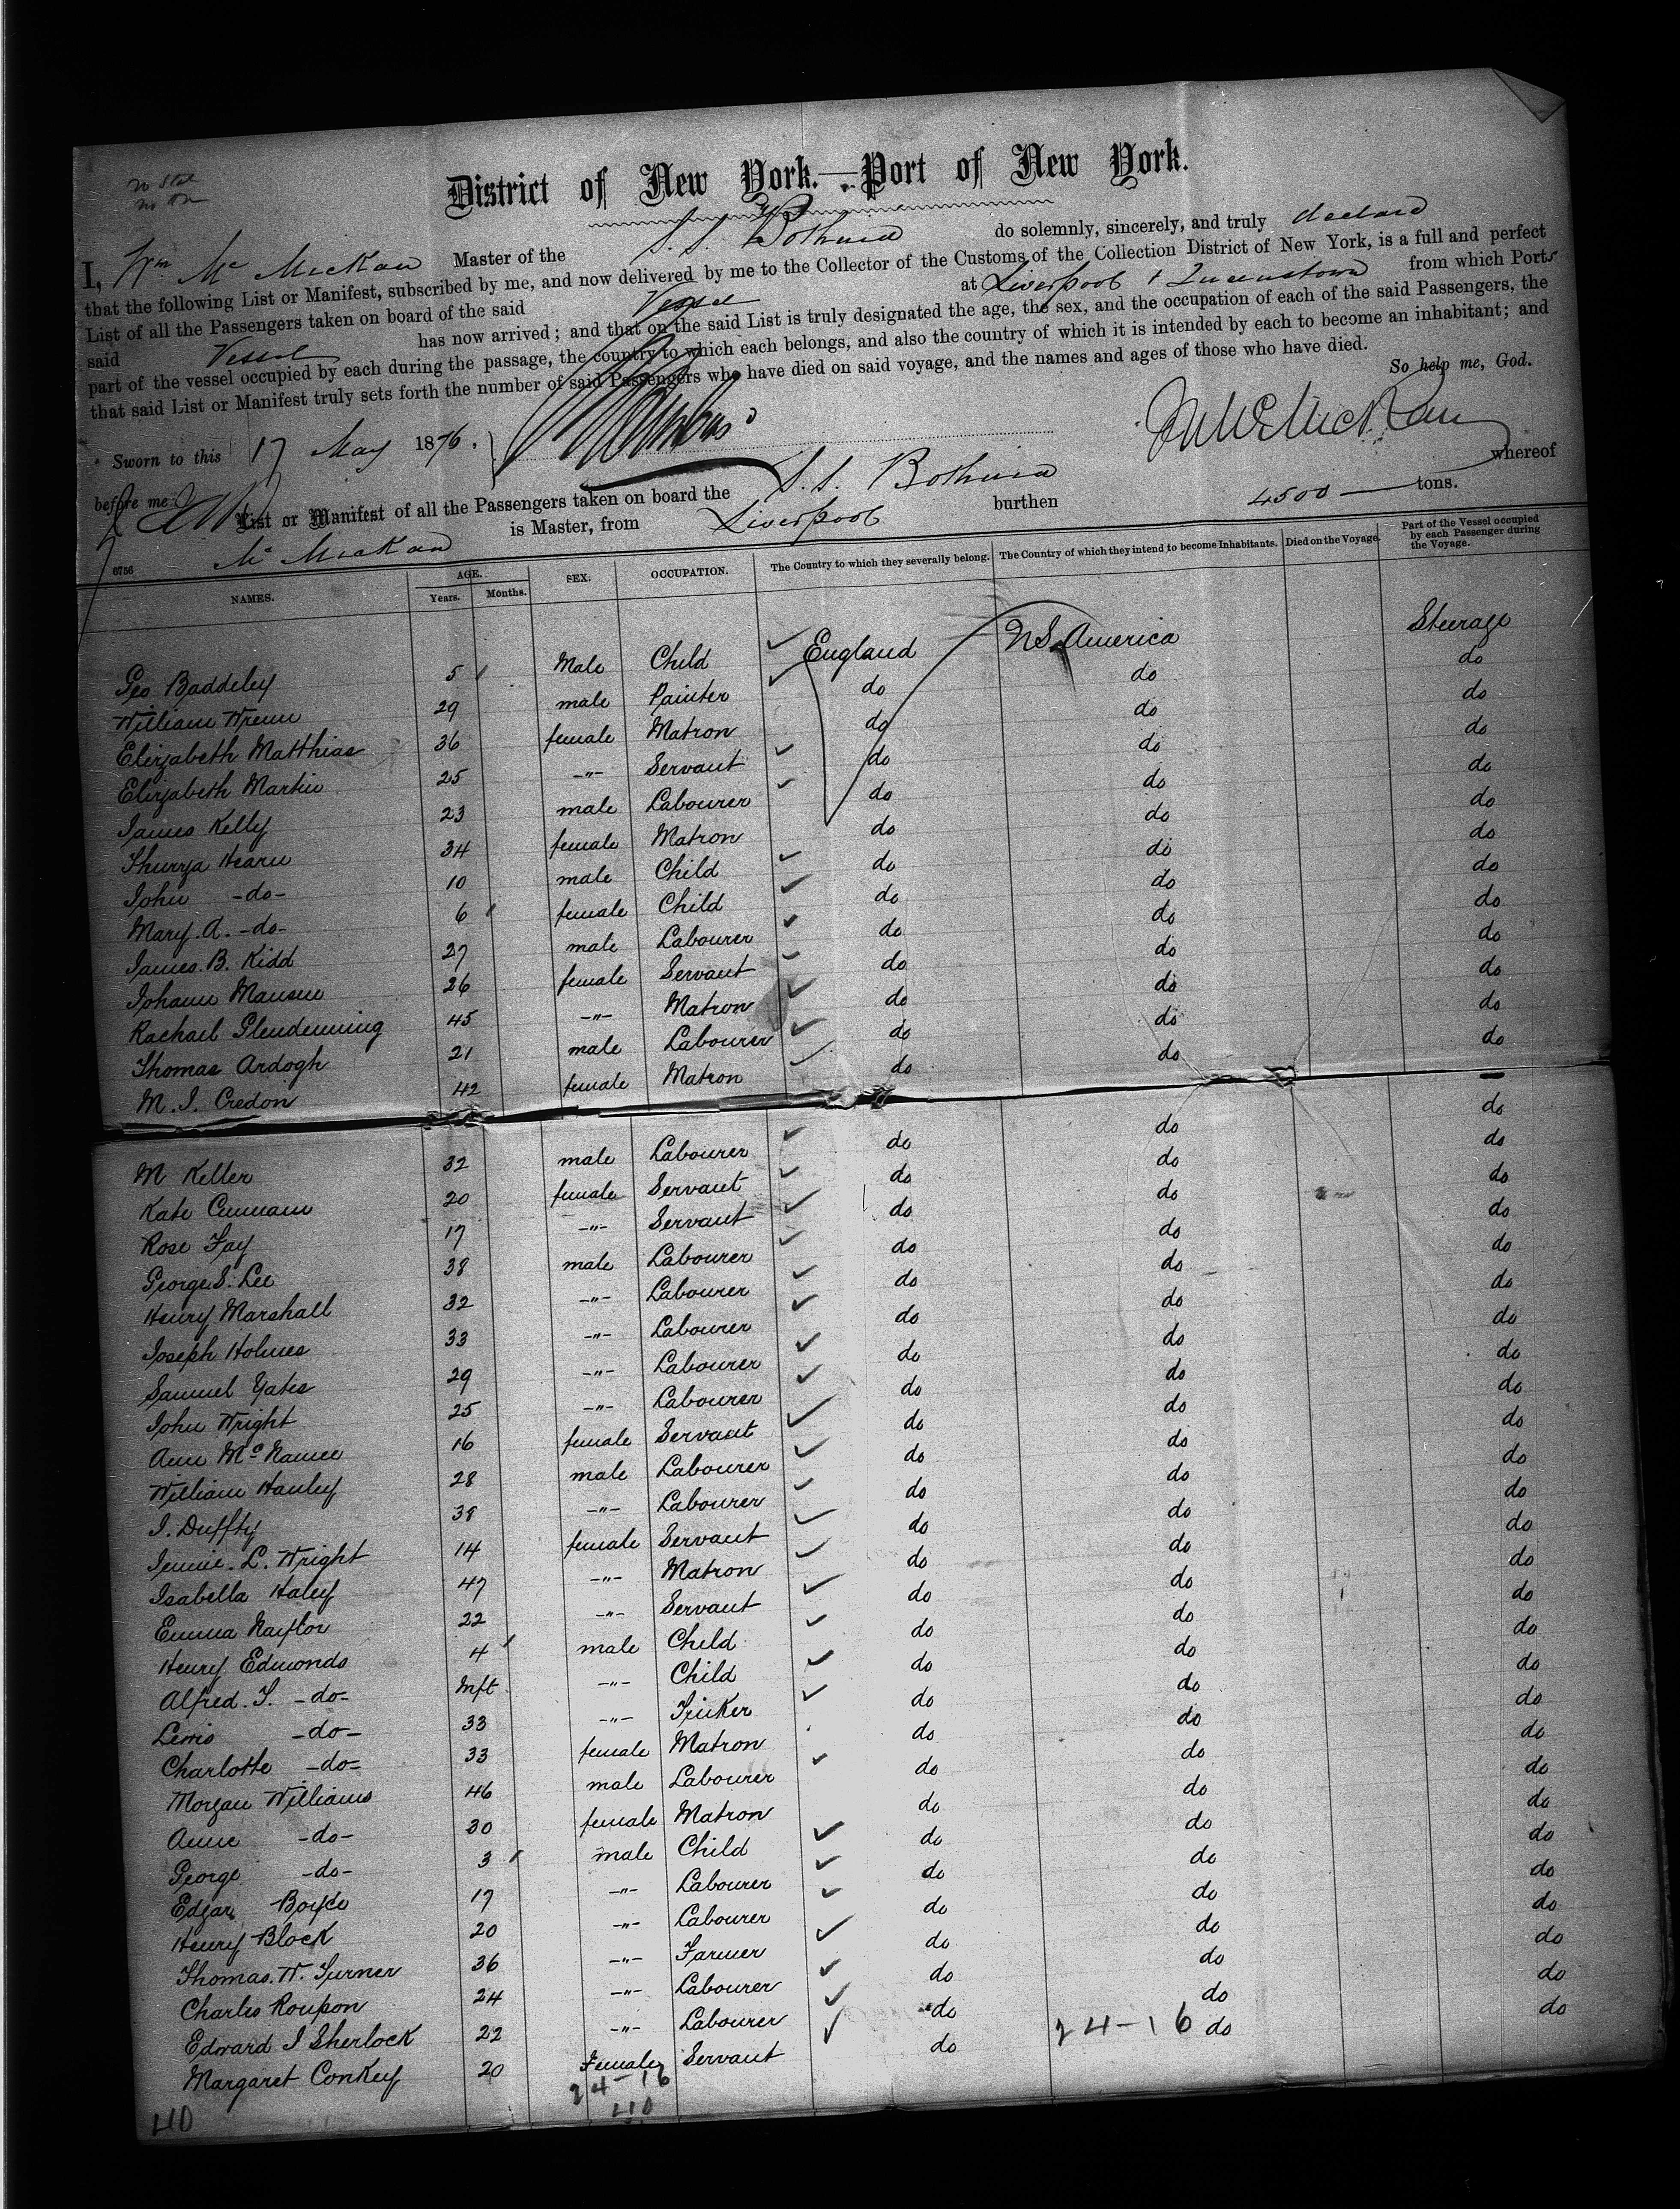 District of New York.—Port of New York.
I, Wm Mc Mickan Master of the S. S. Bothnia do solemnly, sincerely, and truly declare
that the following List or Manifest, subscribed by me, and now delivered by me to the Collector of the Customs of the Collection District of New York, is a full and perfect
List of all the Passengers taken on board of the said Vessel at Liverpool + Queenstown from which Ports
said Vessel has now arrived; and that on the said List is truly designated the age, the sex, and the occupation of each of the said Passengers, the
part of the vessel occupied by each during the passage, the country to which each belongs, and also the country of which it is intended by each to become an inhabitant; and
that said List or Manifest truly sets forth the number of said Passengers who have died on said voyage, and the names and ages of those who have died.
So help me, God.
Sworn to this 17 May 1876. W McMickan
before me
List or Manifest of all the Passengers taken on board the S. S. Bothnia whereof
Mc Mickan is Master, from Liverpool burthen 4500 tons.
6756
NAMES. AGE. Years. Months. SEX. OCCUPATION. The Country to which they severally belong. The Country of which they intend to become Inhabitants. Died on the Voyage. Part of the Vessel occupied by each Passenger during the Voyage.
Geo Baddeley 5 Male Child England N S America Steerage
William Wrenn 29 male Painter do do do
Elizabeth Matthias 36 female Matron do do do
Elizabeth Martin 25 -"- Servant do do do
James Kelly 23 male Labourer do do do
Thurza Hearn 34 female Matron do do do
John -do- 10 male Child do do do
Mary. A. -do- 6 female Child do do do
James. B. Kidd 27 male Labourer do do do
Johann Mansen 26 female Servant do do do
Rachail Glendenning 45 -"- Matron do do do
Thomas Ardogh 21 male Labourer do do do
M. J. Credon 42 female Matron do do do
M Keller 32 male Labourer do do do
Kate 20 female Servant do do do
Rose Fay 17 -"- Servant do do do
George S. Lee 38 male Labourer do do do
Henry Marshall 32 -"- Labourer do do do
Joseph Holmes 33 -"- Labourer do do do
Samuel Yates 29 -"- Labourer do do do
John Wright 25 -"- Labourer do do do
Ann McNamee 16 female Servant do do do
William Hanley 28 male Labourer do do do
J. Duffty 38 -"- Labourer do do do
Jennie. L. Wright 14 female Servant do do do
Isabella Haley 47 -"- Matron do do do
Emma Naylor 22 -"- Servant do do do
Henry Edmonds 4 male Child do do do
Alfred. T. -do- Inft -"- Child do do do
Lewis -do- 33 -"- Tinker do do do
Charlotte -do- 33 female Matron do do do
Morgan Williams 46 male Labourer do do do
Anne -do- 30 female Matron do do do
George -do- 3 male Child do do do
Edgar Boyce 17 -"- Labourer do do do
Henry Block 20 -"- Labourer do do do
Thomas. W. Turner 36 -"- Farmer do do do
Charles Roupon 24 -"- Labourer do do do
Edward J Sherlock 22 -"- Labourer do do do
Margaret Conkey 20 Female Servant do 24-16 do do
24-16
40 40